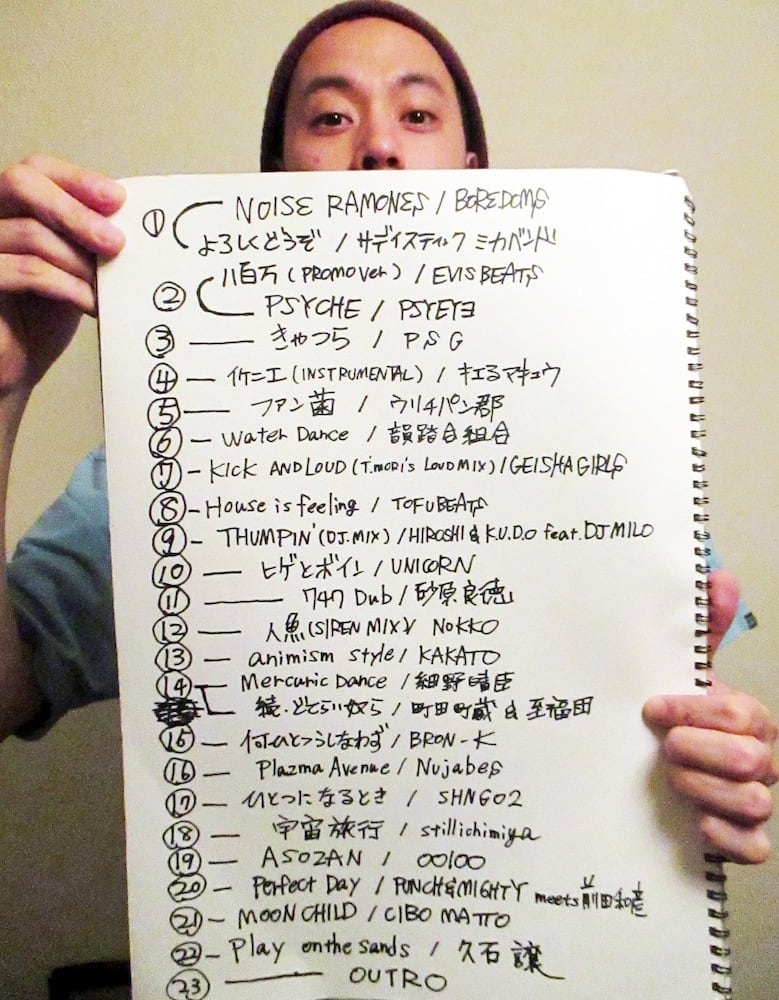 ① NOISE RAMONES / BOREDOMS
よろしくどうぞ / サディスティック ミカバンド
② 八百万 (PROMO Ver) / EVISBEATS
PSYCHE / PSYEYヨ
③ — きゃつら / PSG
④ — イケニエ (INSTRUMENTAL) / キエるマキュウ
⑤ — ファン菌 / ウリチパン郡
⑥ - Water Dance / 韻踏合組合
⑦ - KICK AND LOUD (T.MORI's LOUD MIX) / GEISHA GIRLS
⑧ - House is feeling / TOFUBEATS
⑨ - THUMPIN' (DJ.MIX) / HIROSHI & K.U.D.O feat. DJ MILO
⑩ — ヒゲとボイン / UNICORN
⑪ — 747 Dub / 砂原良徳
⑫ — 人魚 (SIREN MIX) / NOKKO
⑬ — animism style / KAKATO
⑭ — Mercuric Dance / 細野晴臣
続・どてらい奴ら / 町田町蔵 & 至福団
⑮ — 何ひとつうしなわず / BRON-K
⑯ — Plazma Avenue / Nujabes
⑰ — ひとつになるとき / SHNGO2
⑱ — 宇宙旅行 / stillichimiya
⑲ — ASOZAN / OOIOO
⑳ — Perfect Day / PUNCH & MIGHTY meets 前田和彦
㉑ — MOON CHILD / CIBO MATTO
㉒ - Play on the sands / 久石 譲
㉓ — OUTRO